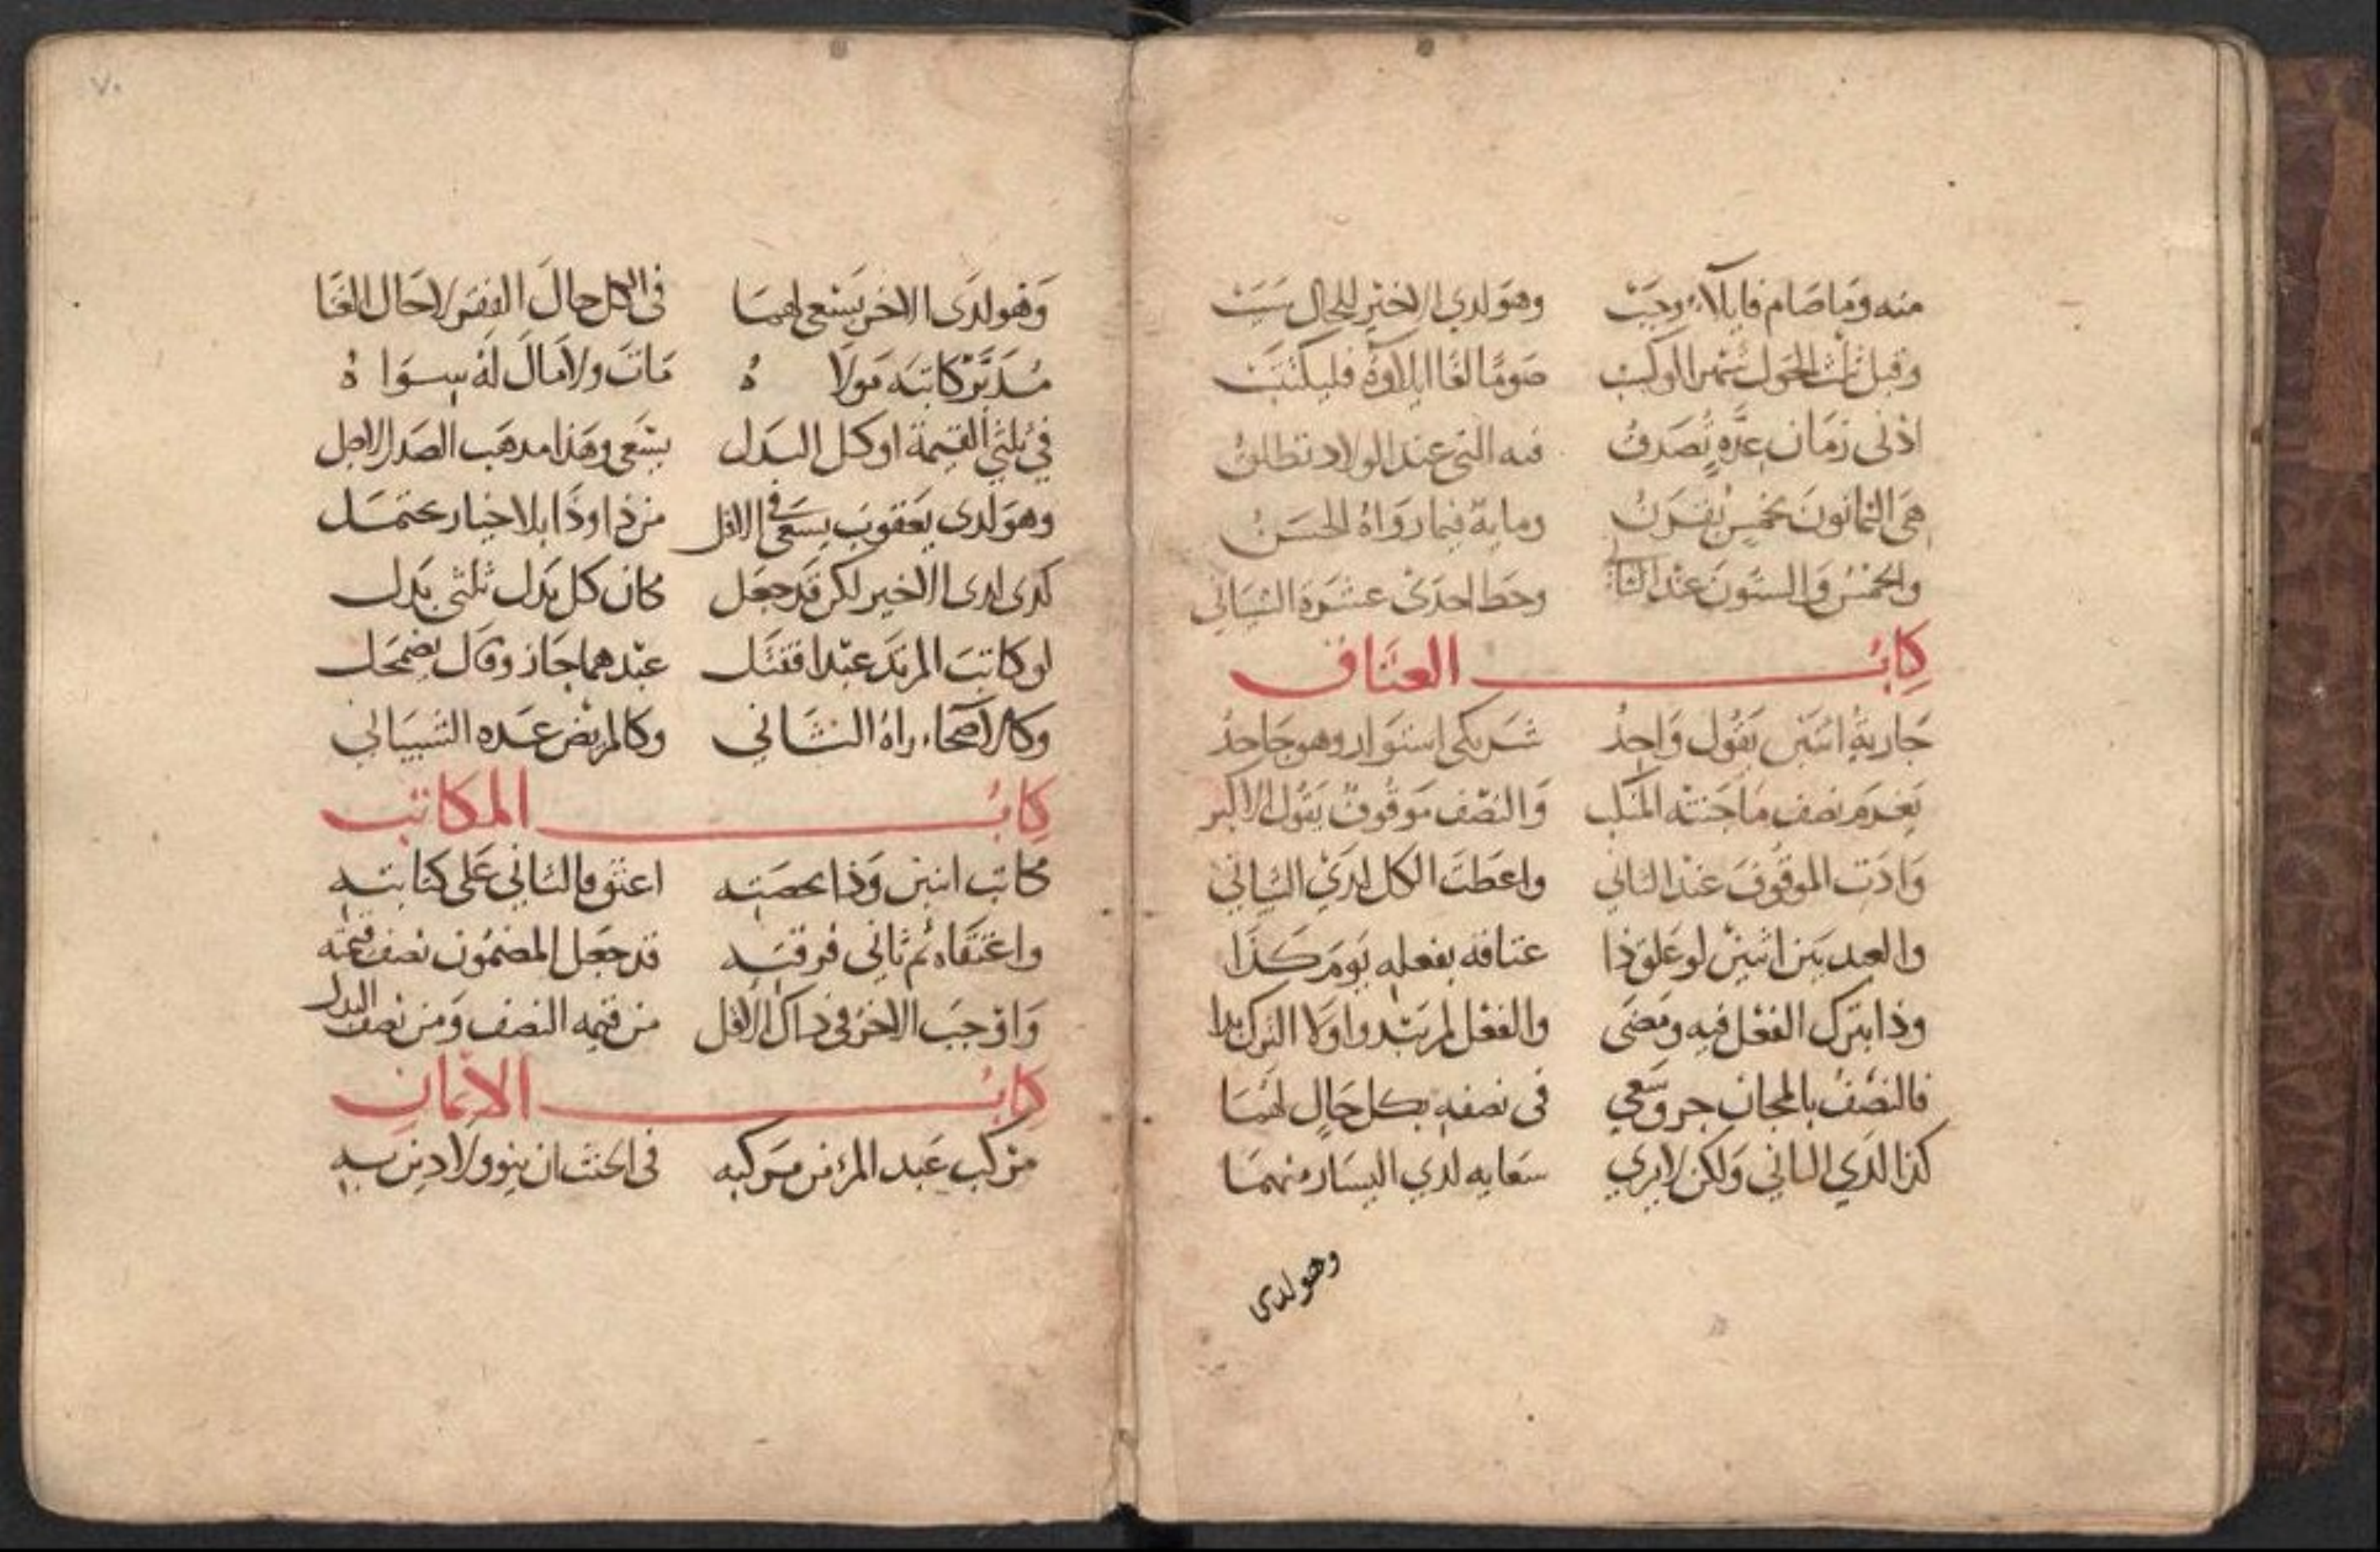 منه وما صام فايلاء وجبت وهو لدي الاخير للحال سبت
وقبل ثلث الحول شهرا لو كبت صوما لغا ايلاوه فليكتبت
ادنى زمان عده تصدق فيه التي عند الولاد تطلق
هي الثمانون بخمس تقرن ومايه فيما رواه الحسن
والخمس والستون عند الثاني وحط احدى عشرة الشيباني
كتاب العتاق
جارية اثنين يقول واحد شريكي استولد وهو جاحد
يغرم نصف ما جنته المنكب والنصف موقوف يقول الاكبر
وادت الموقوف عند الثاني واعطت الكل لدي الشيباني
والعبد بين اثنين لو علق ذا عتاقه بفعله يوم كذا
وذا بترك الفعل فيه ومضى والفعل لم يبد ولا الترك بدا
فالنصف بالمجان حر وسعي في نصفه بكل حال لهما
كذا لدي الثاني ولكن لا يري سعايه لدي اليسار منهما
وهو لدى
٧٠
وهو لدى الاخر يسعى لهما في الكل حال الفقر لا حال الغنا
مدبر كاتبه مولاه مات ولا مال له سواه
في ثلثي القيمة او كل البدل يسعى وهذا مدهب الصدر الاجل
وهو لدى يعقوب يسعى في الاقل من ذا وذا بلا خيار محتمل
كدى لدى الاخير لكن قد جعل مكان كل بدل ثلثي بدل
او كاتب المرتد عبدا فقتل عبدهما جاز وقال يضمحل
وكالاصحاء راه الثاني وكالمريض عده الشيباني
كتاب المكاتب
مكاتب اثنين وذا بحصته اعتق فالثاني على كتابته
واعتقاه ثم ثاني فرقته قد جعل المضمون نصف قيمته
واوجب الاخر في ذاك الاقل من قيمه النصف ومن نصف البدل
كتاب الايمان
مركب عبد المرء من مركبه في الحنث ان ينوو لا دين به